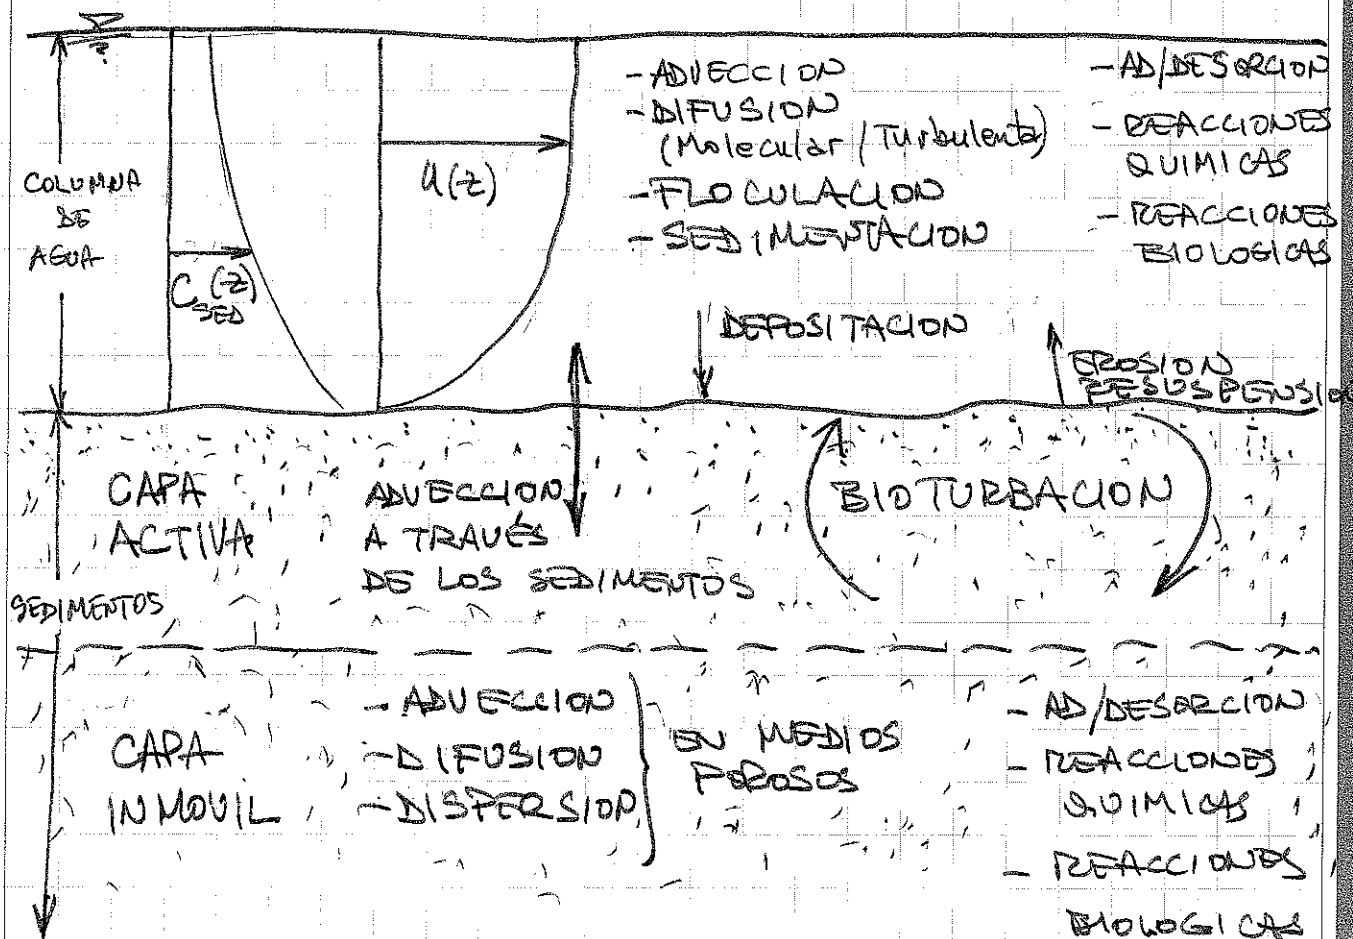 COLUMNA
DE
AGUA
C (z)
SED
u(z)
-ADVECCION
-DIFUSION
(Molecular / Turbulenta)
-FLOCULACION
-SEDIMENTACION
-AD/DESORCION
-REACCIONES
QUIMICAS
-REACCIONES
BIOLOGICAS
DEPOSITACION
EROSION
RESUSPENSION
SEDIMENTOS
CAPA
ACTIVA
ADVECCION
A TRAVÉS
DE LOS SEDIMENTOS
BIOTURBACION
CAPA
INMOVIL
-ADVECCION
-DIFUSION
-DISPERSION
EN MEDIOS
POROSOS
-AD/DESORCION
-REACCIONES
QUIMICAS
-REACCIONES
BIOLOGICAS